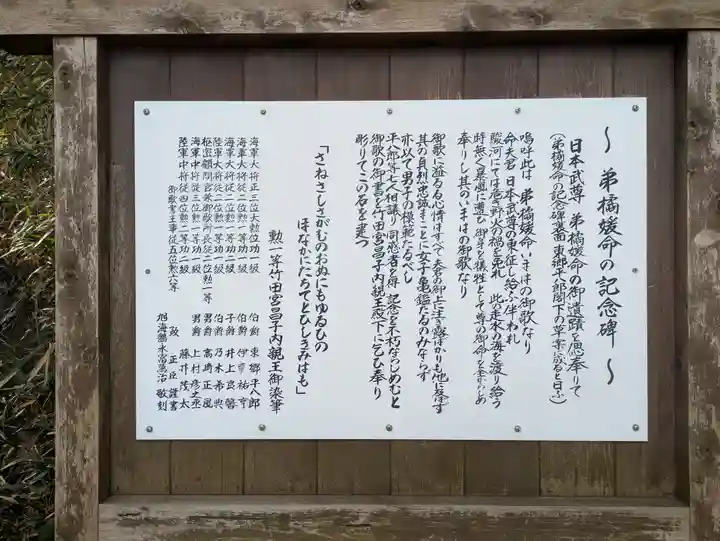 ～ 弟橘媛命の記念碑 ～
日本武尊 弟橘媛命の御遺蹟を思奉りて
(弟橘媛命の記念碑裏面 東郷平八郎閣下の草案に成ると曰ふ)
嗚呼此は 弟橘媛命いまはの御歌なり
命夫君 日本武尊の東征し給ふに伴われ
駿河にては危き野火の禍を免れ 此の走水の海を渡り給う
時無く暴風に遭ひ 御身を犠牲として尊の御命を全からしめ
奉りし其のいまはの御歌なり
御歌に溢るる心情はすべて夫君の御上に注ぎ露ばかりも他に及ぼさず
其の貞烈忠誠まことに女子の亀鑑たるのみならず
亦以て男子の模範たるべし
平八郎等七人相議り同感者を得 記念を不朽ならしめむと
御歌の御書を竹田宮昌子内親王殿下に乞ひ奉り
彫りてこの石を建つ
「さねさしさがむのおぬにもゆるひの
ほなかにたちてとひしきみはも」
勲一等竹田宮昌子内親王御染筆
海軍大将正三位大勲位功一級 伯爵 東郷平八郎
海軍大将従二位勲一等功一級 伯爵 伊東祐亨
海軍大将従二位勲一等功二級 子爵 井上良馨
陸軍大将従二位勲一等功一級 伯爵 乃木希典
枢密顧問官兼御歌所長従二位勲一等 男爵 高崎正風
海軍中将従三位勲一等功一級 男爵 上村彦之丞
陸軍中将従四位勲二等功二級 藤井茂太
御歌所主事従五位勲六等 阪正臣謹書
旭海鶴 永富萬治 敬刻